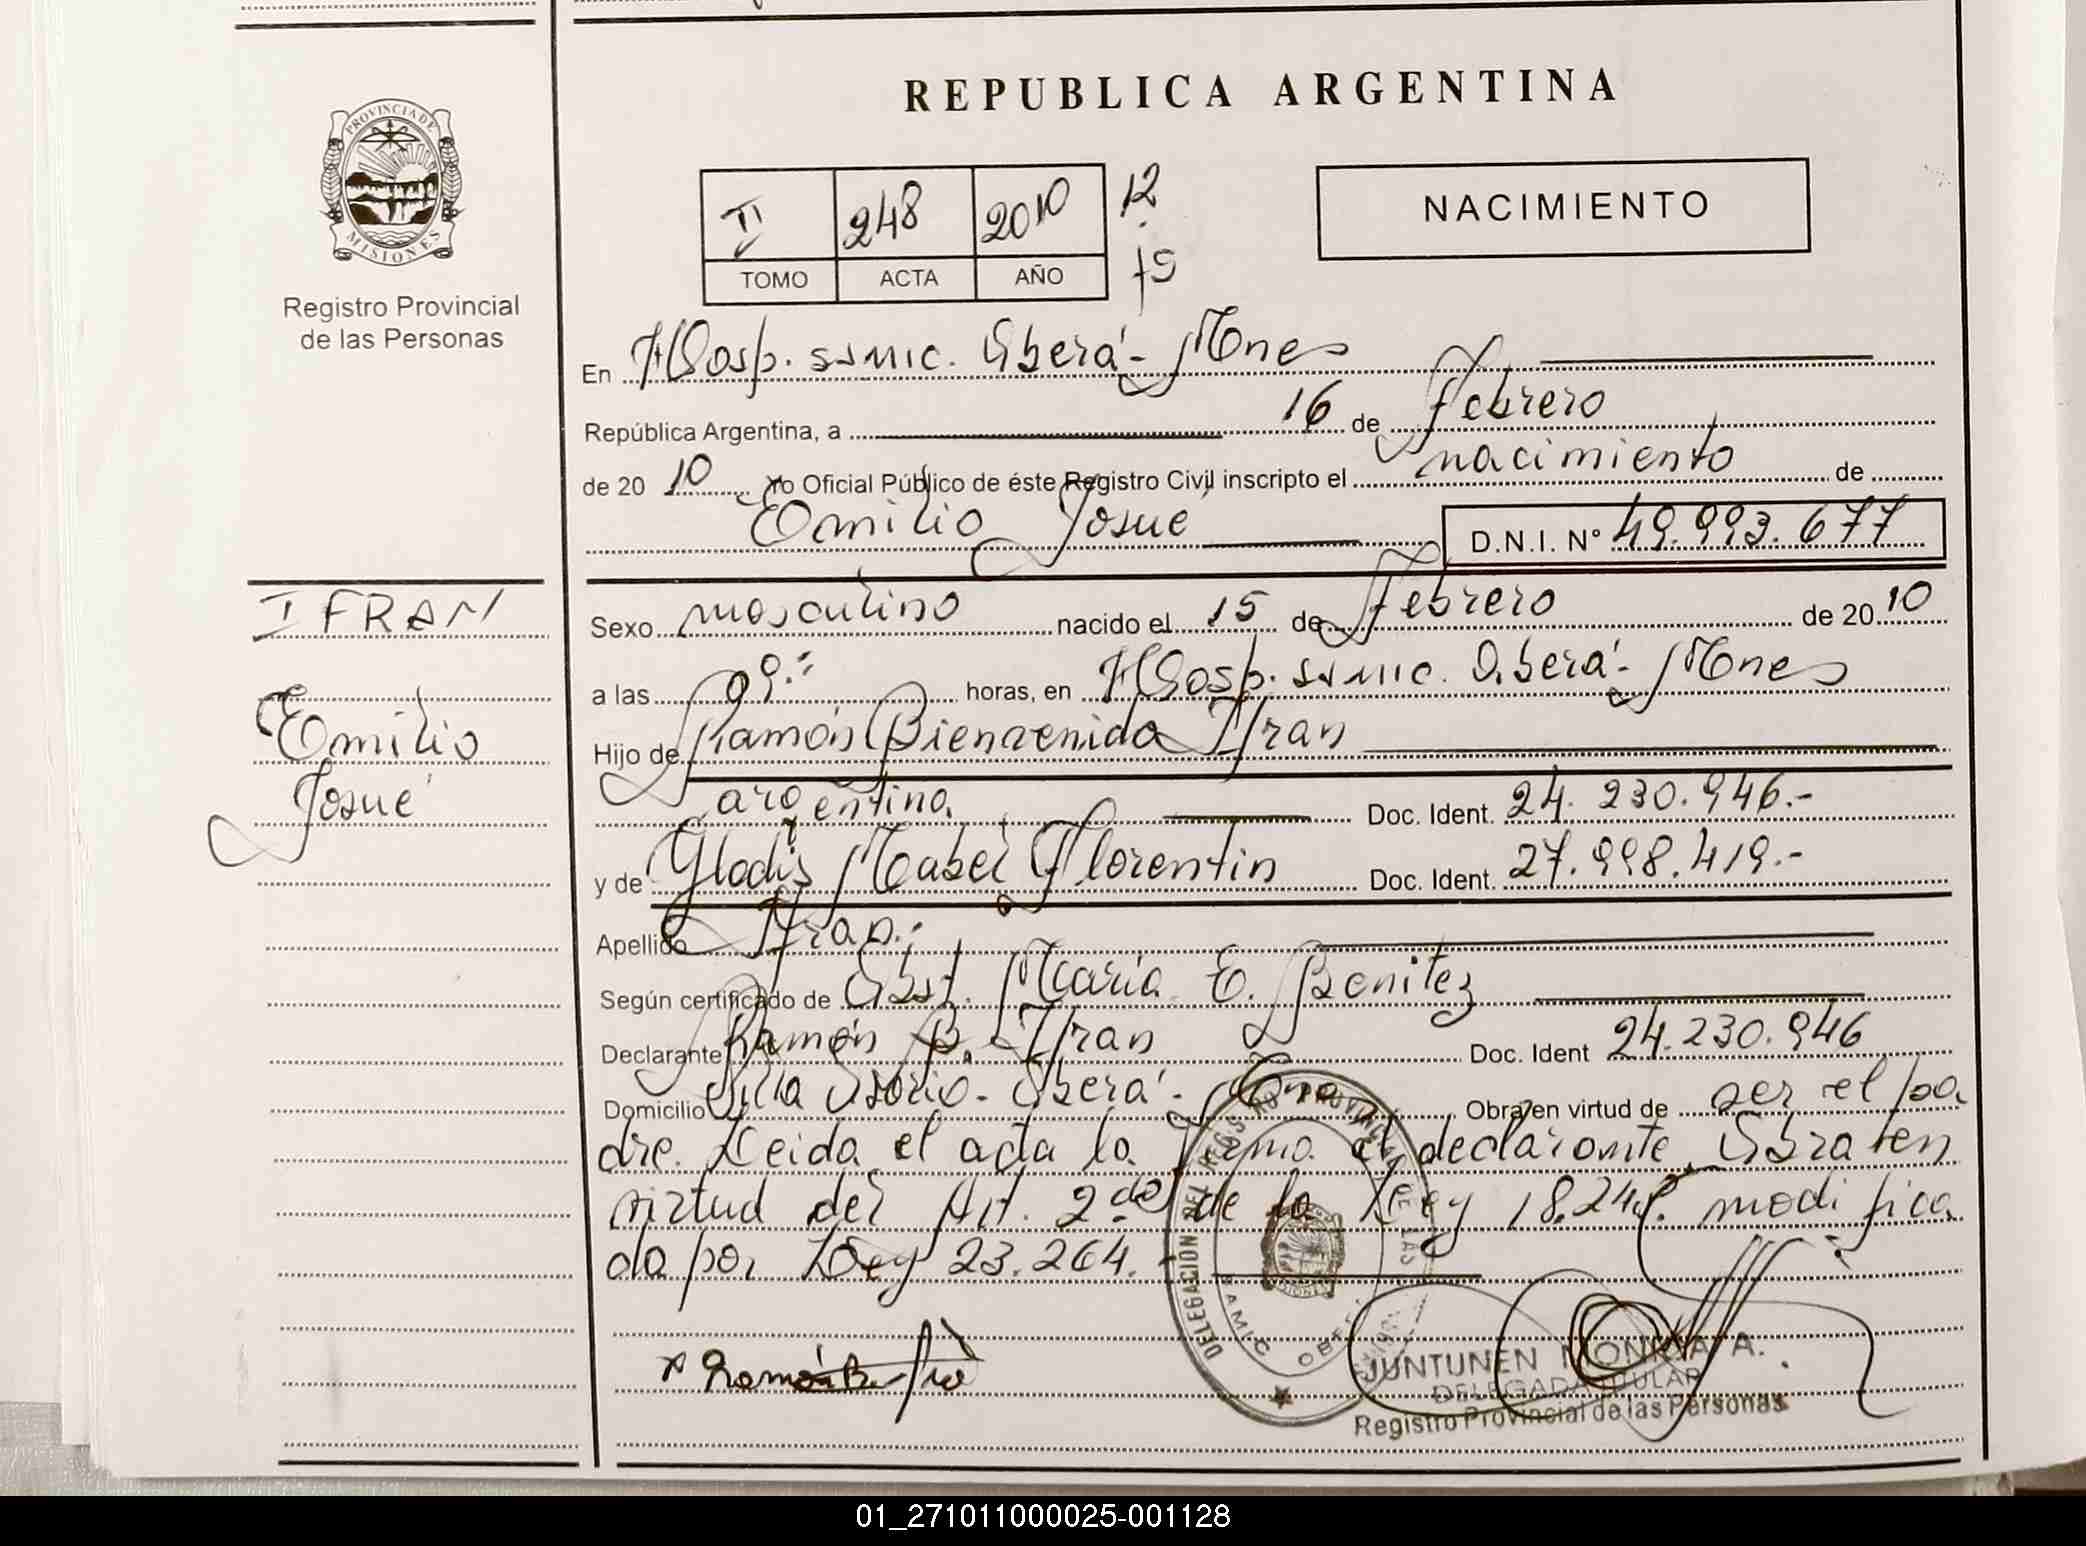 REPUBLICA ARGENTINA
PROVINCIA DE
MISIONES
Registro Provincial
de las Personas
II 248 2010 12
TOMO ACTA AÑO
NACIMIENTO
En Hosp. SAMIC. Oberá - Mnes
República Argentina, a 16 de febrero
de 2010 Yo Oficial Público de éste Registro Civil inscripto el nacimiento de
Emilio Josué D.N.I. Nº 49.993.677
IFRAN
Emilio
Josué
Sexo masculino nacido el 15 de febrero de 2010
a las 09:- horas, en Hosp. SAMIC. Oberá - Mnes
Hijo de Ramón Bienvenido Ifran
argentino Doc. Ident. 24.230.946.-
y de Gladis Mabel Florentin Doc. Ident. 27.998.419.-
Apellido Ifran.-
Según certificado de Obst. María E. Benitez
Declarante Ramón B. Ifran Doc. Ident 24.230.946
Domicilio Villa Osorio - Oberá - Mnes Obra en virtud de ser el pa
dre. Leida el acta la firma el declarante. Obra en
virtud del Art. 2do de la Ley 18.248. modifica
da por Ley 23.264.-
DELEGACIÓN DEL REGISTRO PROVINCIAL DE LAS
SAMIC OBERÁ
JUNTUNEN MONICA A.
DELEGADA TITULAR
Registro Provincial de las Personas
01_271011000025-001128